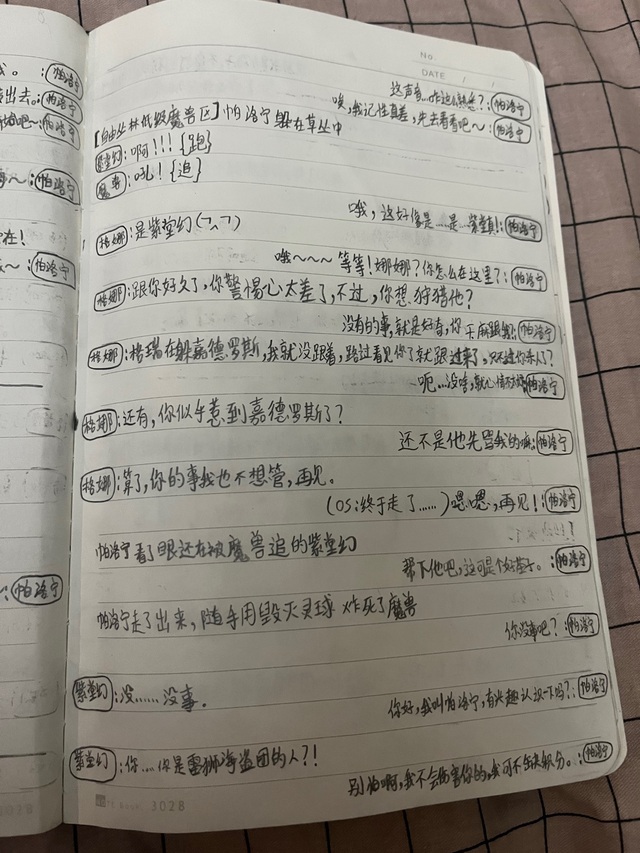 。:帕洛宁
出去。:帕洛宁
吧~:帕洛宁
~:帕洛宁
在!
~:帕洛宁
:帕洛宁
No.
DATE / /
这声音..咋这么熟悉?:帕洛宁
唉,我记性真差,先去看看吧~:帕洛宁
[自由丛林低级魔兽区]帕洛宁躲在草丛中
紫堂幻:啊!!!{跑}
魔兽:吼!{追}
哦,这好像是....是...紫堂真!:帕洛宁
格娜:是紫堂幻(ㄱ_ㄱ)
哦~~~等等!娜娜?你怎么在这里?:帕洛宁
格娜:跟你好久了,你警惕心太差了,不过,你想狩猎他?
没有的事,就是好奇,你干嘛跟我:帕洛宁
格娜:格瑞在躲嘉德罗斯,我就没跟着,路过看见你了就跟过来了,只不过你杀人了?
呃...没啥,就心情不好:帕洛宁
格娜:还有,你似乎惹到嘉德罗斯了?
还不是他先冒我的嘛:帕洛宁
格娜:算了,你的事我也不想管,再见。
(OS:终于走了......)嗯嗯,再见!:帕洛宁
帕洛宁看了眼还在被魔兽追的紫堂幻
帮下他吧,这可是个好苗子。:帕洛宁
帕洛宁走了出来,随手用毁灭灵球炸死了魔兽
你没事吧?:帕洛宁
紫堂幻:没......没事.
你好,我叫帕洛宁,有兴趣认识一下吗?:帕洛宁
紫堂幻:你....你是雷狮海盗团的人?!
别怕啊,我不会伤害你的,我可不缺积分。:帕洛宁
3028